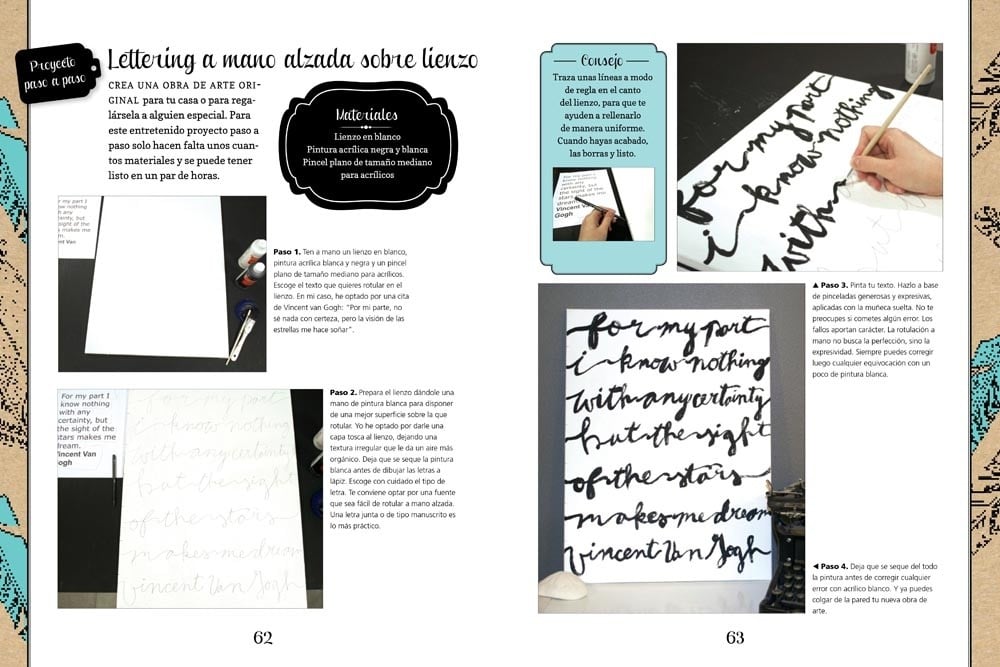 Proyecto
paso a paso
Lettering a mano alzada sobre lienzo
CREA UNA OBRA DE ARTE ORI-
GINAL para tu casa o para rega-
lársela a alguien especial. Para
este entretenido proyecto paso a
paso solo hacen falta unos cuan-
tos materiales y se puede tener
listo en un par de horas.
Materiales
Lienzo en blanco
Pintura acrílica negra y blanca
Pincel plano de tamaño mediano
para acrílicos
Paso 1. Ten a mano un lienzo en blanco,
pintura acrílica blanca y negra y un pincel
plano de tamaño mediano para acrílicos.
Escoge el texto que quieres rotular en el
lienzo. En mi caso, he optado por una cita
de Vincent van Gogh: “Por mi parte, no
sé nada con certeza, pero la visión de las
estrellas me hace soñar”.
Paso 2. Prepara el lienzo dándole una
mano de pintura blanca para disponer
de una mejor superficie sobre la que
rotular. Yo he optado por darle una
capa tosca al lienzo, dejando una
textura irregular que le da un aire más
orgánico. Deja que se seque la pintura
blanca antes de dibujar las letras a
lápiz. Escoge con cuidado el tipo de
letra. Te conviene optar por una fuente
que sea fácil de rotular a mano alzada.
Una letra junta o de tipo manuscrito es
lo más práctico.
For my part I
know nothing
with any
certainty, but
the sight of the
stars makes me
dream.
Vincent Van
Gogh
for my part
i know nothing
with any certainty
but the sight
of the stars
makes me dream
Vincent Van Gogh
62
Consejo
Traza unas líneas a modo
de regla en el canto
del lienzo, para que te
ayuden a rellenarlo
de manera uniforme.
Cuando hayas acabado,
las borras y listo.
for my part
i know nothing
with
▲ Paso 3. Pinta tu texto. Hazlo a base
de pinceladas generosas y expresivas,
aplicadas con la muñeca suelta. No te
preocupes si cometes algún error. Los
fallos aportan carácter. La rotulación a
mano no busca la perfección, sino la
expresividad. Siempre puedes corregir
luego cualquier equivocación con un
poco de pintura blanca.
for my part
i know nothing
with any certainty
but the sight
of the stars
makes me dream
Vincent Van Gogh
◀ Paso 4. Deja que se seque del todo
la pintura antes de corregir cualquier
error con acrílico blanco. Y ya puedes
colgar de la pared tu nueva obra de
arte.
63